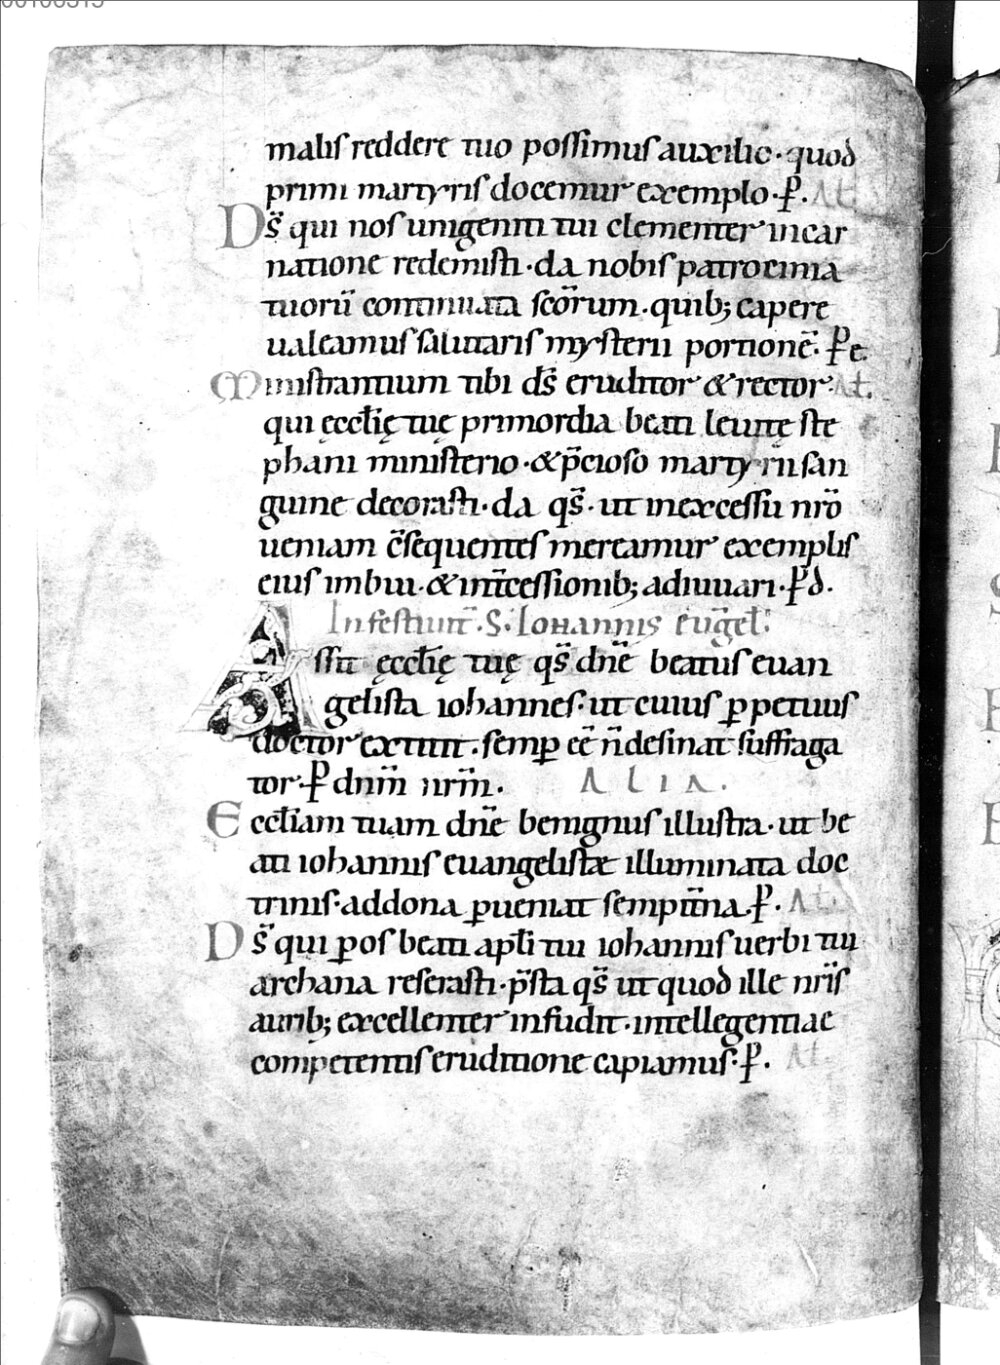 malis reddere tuo possimus auxilio · quod
primi martyris docemur exemplo · P̲. At
Ds̄ qui nos unigeniti tui clementer incar
natione redemisti · da nobis patrocinia
tuorū continuata scōrum · quib; capere
ualeamus salutaris mysterii portionē. P̲ e
Ministrantium tibi ds̄ eruditor & rector. At.
qui ęcclię tuę primordia beati leuitę ste
phani ministerio · & p̄cioso martyrii san
guine decorasti · da qs̄ · ut inexcessu nrō
ueniam c̄sequentes mereamur exemplis
eius imbui · & int̄cessionib; adiuuari · P̲ d.
In festiuit̄ · S · Iohannis eug̅el:
Assit ęcclię tuę qs̄ dnē beatus euan
gelista iohannes · ut cuius ꝑpetuus
doctor extitit · semꝑ eē n̄ desinat suffraga
tor · P̲ dnm̄ nrm̄. ALIA.
Eccliam tuam dnē benignus illustra · ut be
ati iohannis euangelistæ illuminata doc
trinis · ad dona ꝑueniat sempit̄na. P̲. At.
Ds̄ qui ꝑ os beati apli tui iohannis uerbi tui
archana reserasti · p̄sta qs̄ ut quod ille nrīs
aurib; excellenter infudit · intellegentiae
competentis eruditione capiamus · P̲. At.